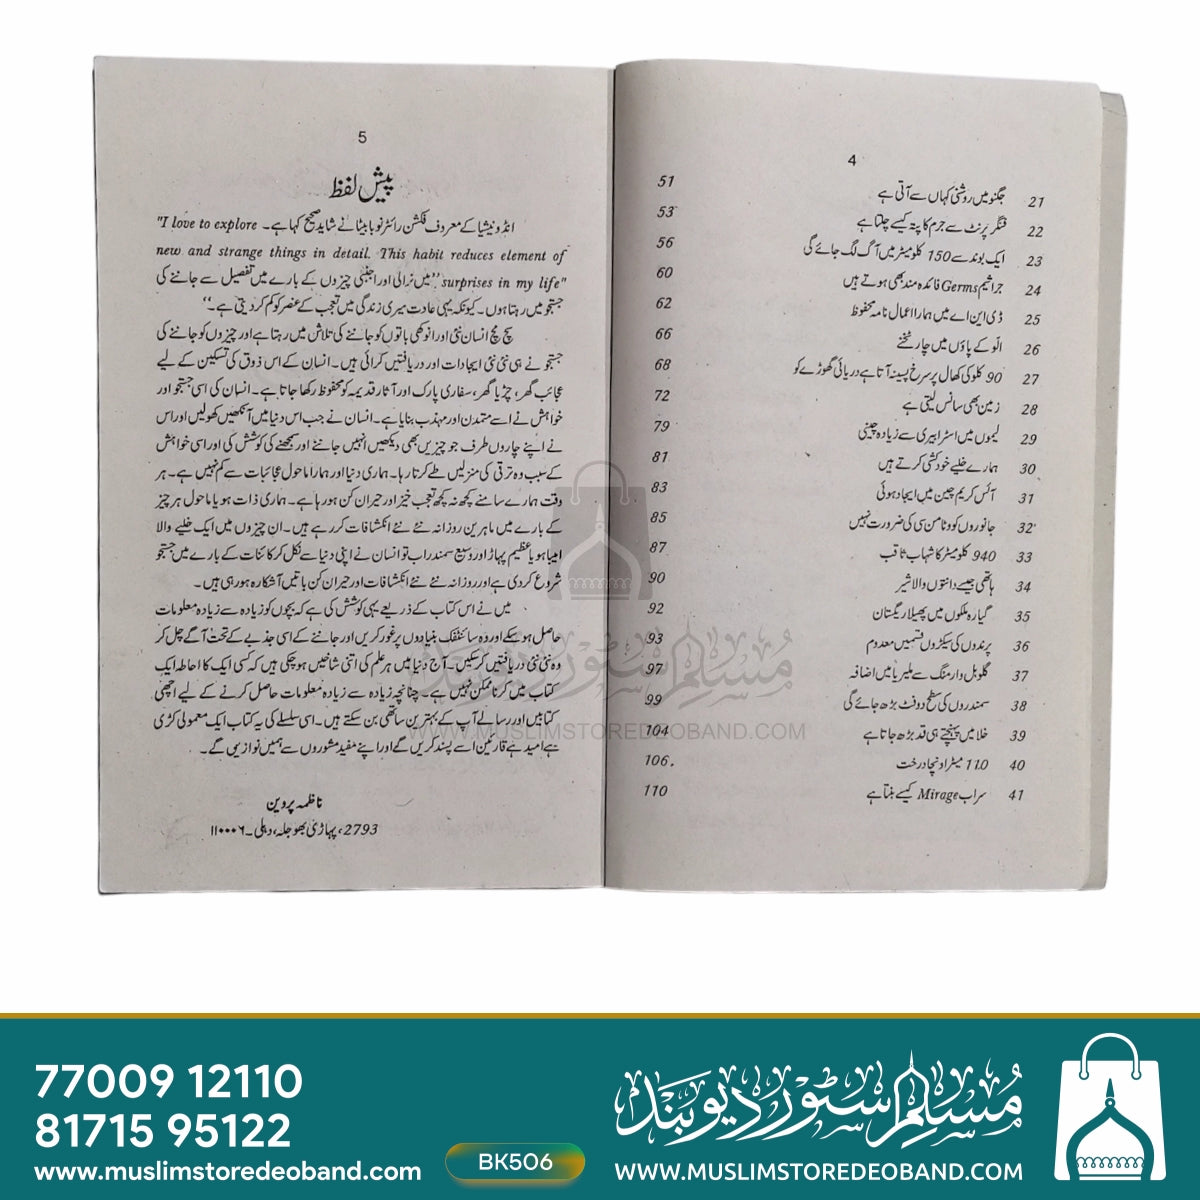 4
21 جگنو میں روشنی کہاں سے آتی ہے 51
22 فنگر پرنٹ سے جرم کا پتہ کیسے چلتا ہے 53
23 ایک بوند سے 150 کلومیٹر میں آگ لگ جائے گی 56
24 جراثیم Germs فائدہ مند بھی ہوتے ہیں 60
25 ڈی این اے میں ہمارا اعمال نامہ محفوظ 62
26 الّو کے پاؤں میں چار ٹخنے 66
27 90 کلو کی کھال پر سرخ پسینہ آتا ہے دریائی گھوڑے کو 68
28 زمین بھی سانس لیتی ہے 72
29 لیموں میں اسٹرابیری سے زیادہ چینی 79
30 ہمارے خلیے خودکشی کرتے ہیں 81
31 آئس کریم چین میں ایجاد ہوئی 83
32 جانوروں کو وٹامن سی کی ضرورت نہیں 85
33 940 کلومیٹر کا شہاب ثاقب 87
34 ہاتھی جیسے دانتوں والا شیر 90
35 گیارہ ملکوں میں پھیلا ریگستان 92
36 پرندوں کی سیکڑوں قسمیں معدوم 93
37 گلوبل وارمنگ سے ملیریا میں اضافہ 97
38 سمندروں کی سطح دو فٹ بڑھ جائے گی 99
39 خلا میں پہنچتے ہی قد بڑھ جاتا ہے 104
40 110 میٹر اونچا درخت 106
41 سراب Mirage کیسے بنتا ہے 110
5
پیش لفظ
انڈونیشیا کے معروف فکشن رائٹر نوبا بیٹا نے شاید صحیح کہا ہے۔ "I love to explore
new and strange things in detail. This habit reduces element of
surprises in my life" ”میں نرالی اور اجنبی چیزوں کے بارے میں تفصیل سے جاننے کی
جستجو میں رہتا ہوں۔ کیونکہ یہی عادت میری زندگی میں تعجب کے عنصر کو کم کر دیتی ہے۔“
سچ مچ انسان نئی اور انوکھی باتوں کو جاننے کی تلاش میں رہتا ہے اور چیزوں کو جاننے کی
جستجو نے ہی نئی نئی ایجادات اور دریافتیں کرائی ہیں۔ انسان کے اس ذوق کی تسکین کے لیے
عجائب گھر، چڑیا گھر، سفاری پارک اور آثار قدیمہ کو محفوظ رکھا جاتا ہے۔ انسان کی اسی جستجو اور
خواہش نے اسے متمدن اور مہذب بنایا ہے۔ انسان نے جب اس دنیا میں آنکھیں کھولیں اور اس
نے اپنے چاروں طرف جو چیزیں بھی دیکھیں انہیں جاننے اور سمجھنے کی کوشش کی اور اسی خواہش
کے سبب وہ ترقی کی منزلیں طے کرتا رہا۔ ہماری دنیا اور ہمارا ماحول عجائبات سے کم نہیں ہے۔ ہر
وقت ہمارے سامنے کچھ نہ کچھ تعجب خیز اور حیران کن ہو رہا ہے۔ ہماری ذات ہو یا ماحول ہر چیز
کے بارے میں ماہرین روزانہ نئے نئے انکشافات کر رہے ہیں۔ ان چیزوں میں ایک خلیے والا
امیبا ہو یا عظیم پہاڑ اور وسیع سمندر اب تو انسان نے اپنی دنیا سے نکل کر کائنات کے بارے میں جستجو
شروع کر دی ہے اور روزانہ نئے نئے انکشافات اور حیران کن باتیں آشکارہ ہو رہی ہیں۔
میں نے اس کتاب کے ذریعے یہی کوشش کی ہے کہ بچوں کو زیادہ سے زیادہ معلومات
حاصل ہو سکے اور وہ سائنٹفک بنیادوں پر غور کریں اور جاننے کے اسی جذبے کے تحت آگے چل کر
وہ نئی نئی دریافتیں کر سکیں۔ آج دنیا میں ہر علم کی اتنی شاخیں ہو چکی ہیں کہ کسی ایک کا احاطہ ایک
کتاب میں کرنا ممکن نہیں ہے۔ چنانچہ زیادہ سے زیادہ معلومات حاصل کرنے کے لیے اچھی
کتابیں اور رسالے آپ کے بہترین ساتھی بن سکتے ہیں۔ اسی سلسلے کی یہ کتاب ایک معمولی کڑی
ہے امید ہے قارئین اسے پسند کریں گے اور اپنے مفید مشوروں سے ہمیں نوازیں گے۔
ناظمہ پروین
2793، پہاڑی بھوجلہ، دہلی۔ ۱۱۰۰۰۶
مسلم سٹور دیوبند
WWW.MUSLIMSTOREDEOBAND.COM
77009 12110
81715 95122
www.muslimstoredeoband.com
BK506
مسلم سٹور دیوبند
WWW.MUSLIMSTOREDEOBAND.COM